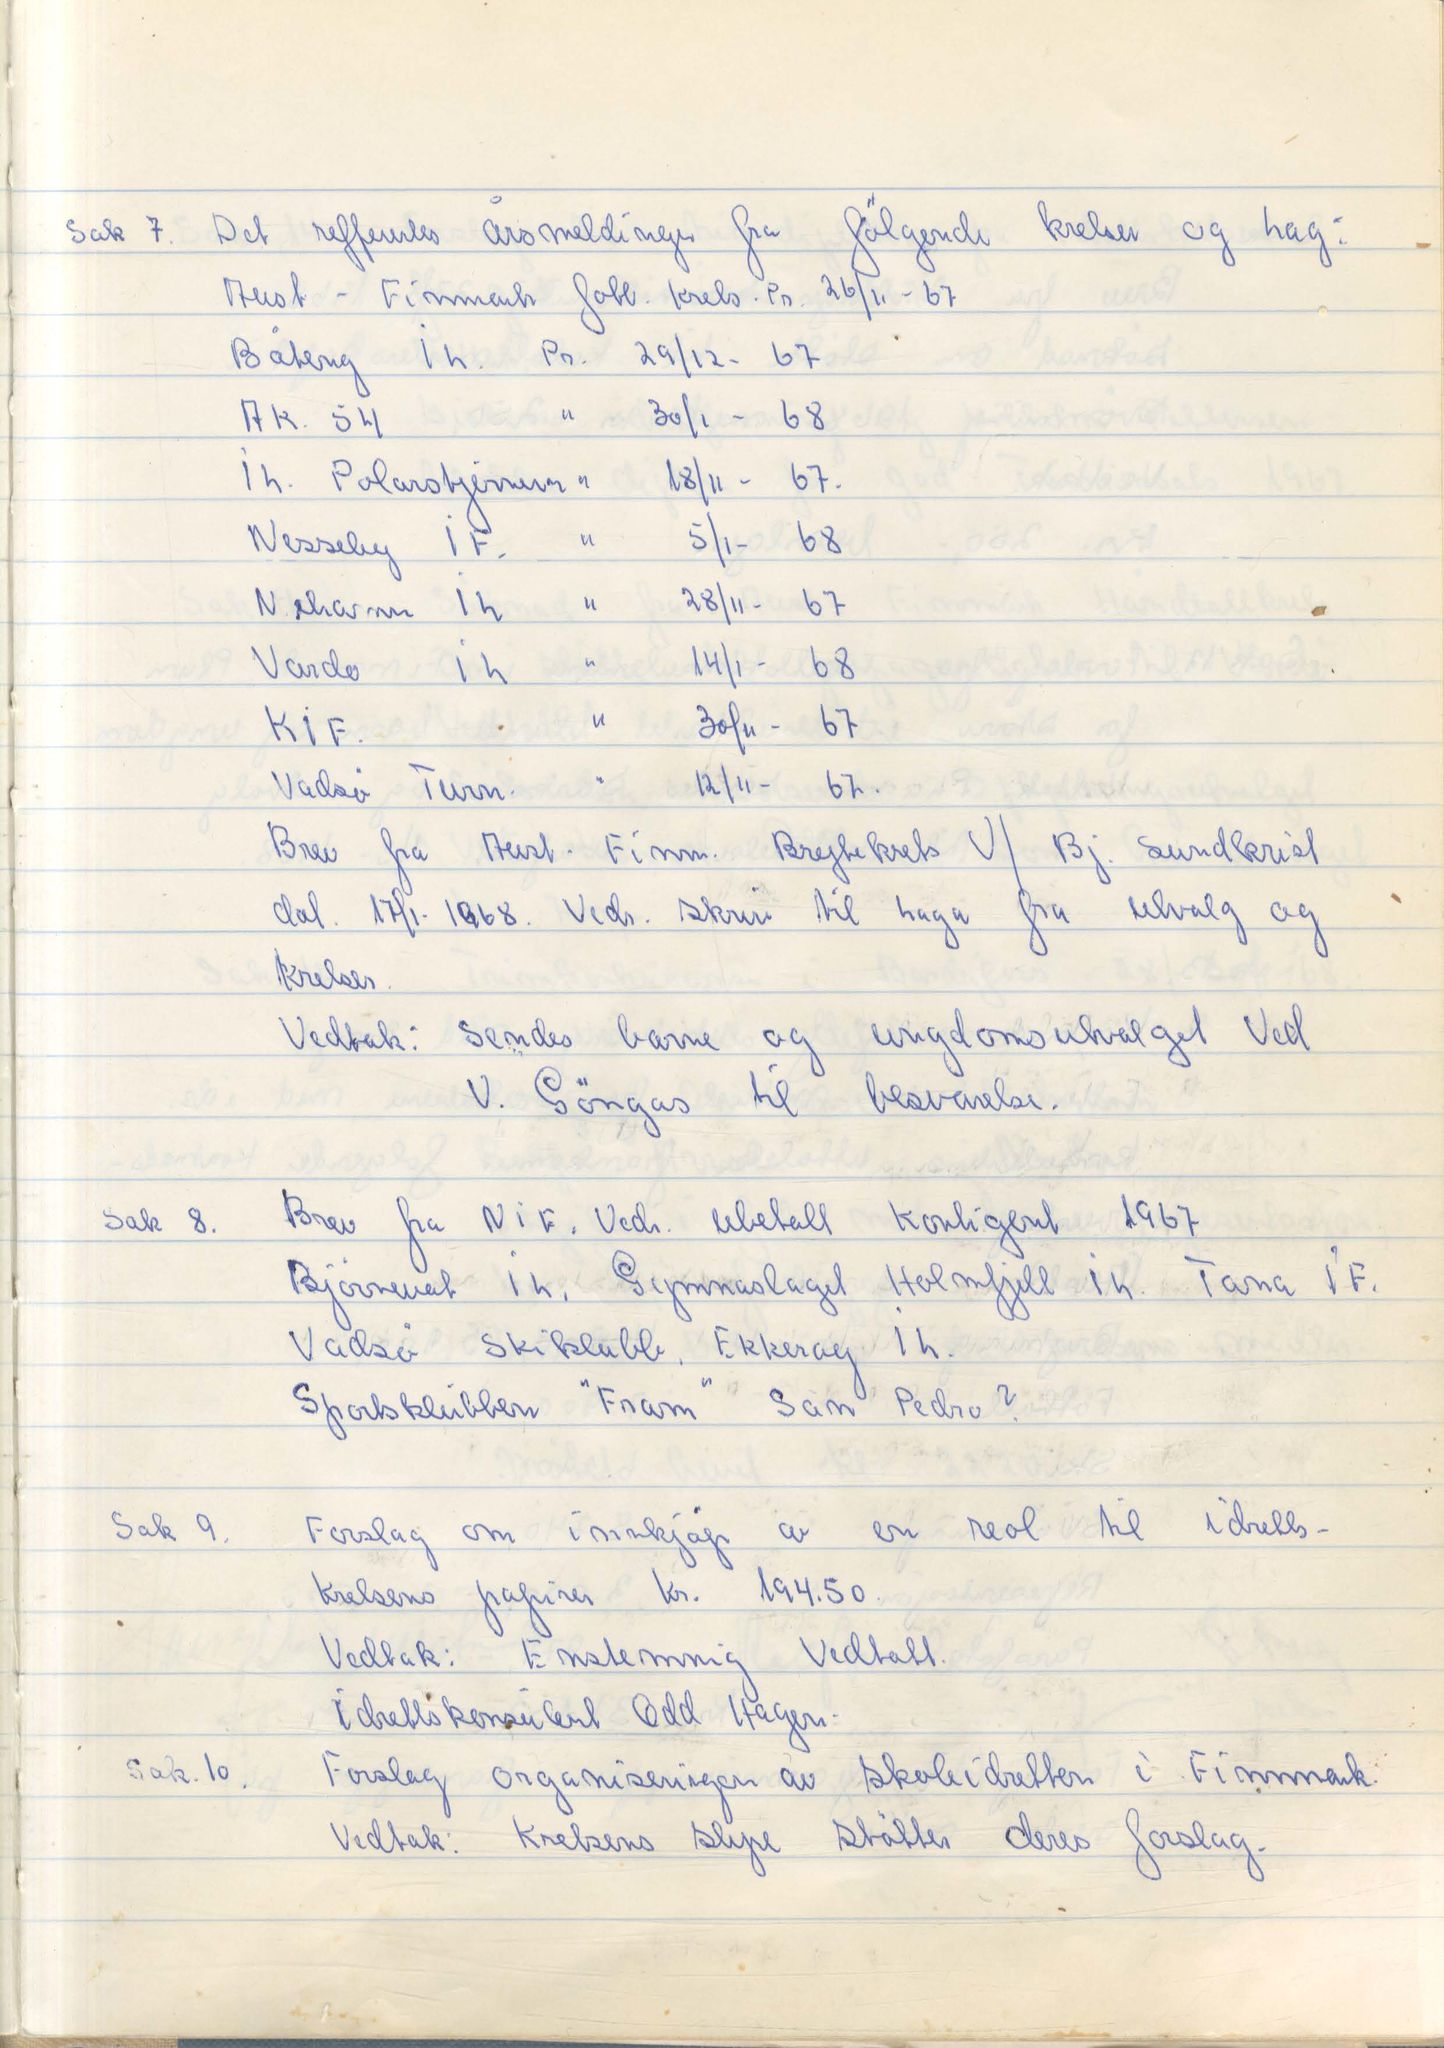 Sak 7. Det refferertes årsmeldinger fra fölgende kretser og lag:
Aust - Finnmark fotb. krets. Pr. 26/11 - 67
Båteng IL. Pr. 29/12 - 67
AK. 54 " 30/1 - 68
IL. Polarstjernen " 18/11 - 67.
Nesseby IF. " 5/1 - 68
Nyhamn IL " 28/11 - 67
Vardö IL " 14/1 - 68
KIF. " 30/11 - 67
Vadsö Turn. " 12/11 - 67.
Brev fra Aust. Finm. Brytekrets V/ Bj. Sundkvist
dat. 17/1 - 1968. Vedr. skriv til laga fra utvalg og
kretser.
Vedtak: Sendes barne og ungdomsutvalget Ved
V. Göngas til besvarelse.
Sak 8. Brev fra NIF. Vedr. ubetalt kontigent 1967
Björnevat IL, Gymnaslaget Holmfjell IL. Tana IF.
Vadsö Skiklubb, Ekkeröy IL.
Sportsklubben "Fram" San Pedro?
Sak 9. Forslag om innkjöp av en reol til idretts-
kretsens papirer kr. 194.50.
Vedtak: Enstemmig Vedtatt.
Idrettskonsulent Odd Hagen.
Sak. 10. Forslag organiseringen av skoleidretten i Finnmark.
Vedtak: Kretsens styre stötter deres forslag.